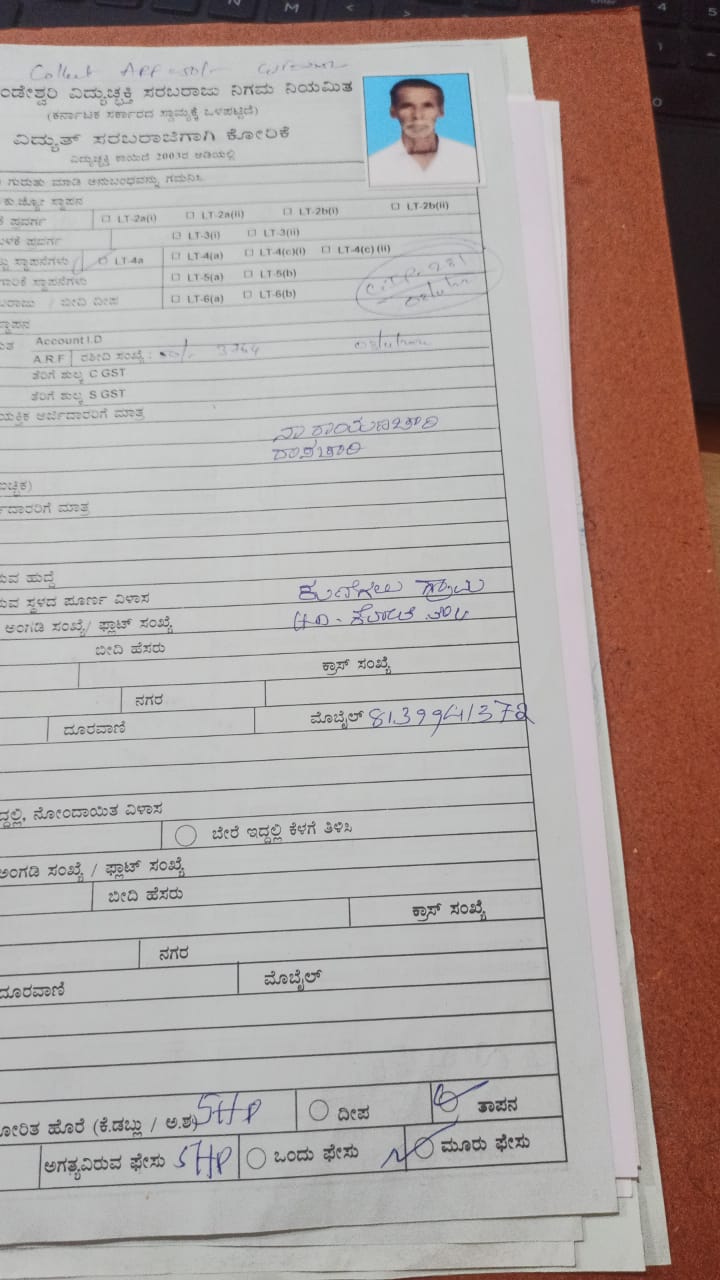 Collect APP
ಂಡೇಶ್ವರಿ ವಿದ್ಯುಚ್ಛಕ್ತಿ ಸರಬರಾಜು ನಿಗಮ ನಿಯಮಿತ
(ಕರ್ನಾಟಕ ಸರ್ಕಾರದ ಸ್ವಾಮ್ಯಕ್ಕೆ ಒಳಪಟ್ಟಿದೆ)
ವಿದ್ಯುತ್ ಸರಬರಾಜಿಗಾಗಿ ಕೋರಿಕೆ
ವಿದ್ಯುಚ್ಛಕ್ತಿ ಕಾಯಿದೆ 2003ರ ಅಡಿಯಲ್ಲಿ
ಗುರುತು ಮಾಡಿ ಅನುಬಂಧವನ್ನು ಗಮನಿಸಿ
ಕು.ಜ್ಯೋ ಸ್ಥಾಪನ
ಕೆ ಪ್ರವರ್ಗ LT-2a(i) LT-2a(ii) LT-2b(i) LT-2b(ii)
ಬಳಕೆ ಪ್ರವರ್ಗ LT-3(i) LT-3(ii)
ಸ್ಥಾಪನೆಗಳು LT-4a LT-4(a) LT-4(c)(i) LT-4(c)(ii)
ಗಾರಿಕೆ ಸ್ಥಾಪನೆಗಳು LT-5(a) LT-5(b)
ಬರಾಜು / ಬೀದಿ ದೀಪ LT-6(a) LT-6(b)
ಸ್ಥಾಪನ
Account I.D
A.R.F ರಶೀದಿ ಸಂಖ್ಯೆ :
ತೆರಿಗೆ ಶುಲ್ಕ C GST
ತೆರಿಗೆ ಶುಲ್ಕ S GST
ಯಕ್ತಿಕ ಅರ್ಜಿದಾರರಿಗೆ ಮಾತ್ರ
ನಾರಾಯಣಚಾರಿ
ಚ್ಛಿಕ)
ರ್ಜಿದಾರರಿಗೆ ಮಾತ್ರ
ರುವ ಹುದ್ದೆ
ರುವ ಸ್ಥಳದ ಪೂರ್ಣ ವಿಳಾಸ ಗ್ರಾಮ
ಅಂಗಡಿ ಸಂಖ್ಯೆ/ ಫ್ಲಾಟ್ ಸಂಖ್ಯೆ
ಬೀದಿ ಹೆಸರು
ಕ್ರಾಸ್ ಸಂಖ್ಯೆ
ನಗರ
ದೂರವಾಣಿ ಮೊಬೈಲ್ 8139941372
ದ್ದಲ್ಲಿ, ನೋಂದಾಯಿತ ವಿಳಾಸ
ಬೇರೆ ಇದ್ದಲ್ಲಿ ಕೆಳಗೆ ತಿಳಿಸಿ
ಅಂಗಡಿ ಸಂಖ್ಯೆ / ಫ್ಲಾಟ್ ಸಂಖ್ಯೆ
ಬೀದಿ ಹೆಸರು
ಕ್ರಾಸ್ ಸಂಖ್ಯೆ
ನಗರ
ದೂರವಾಣಿ ಮೊಬೈಲ್
ೋರಿತ ಹೊರೆ (ಕೆ.ಡಬ್ಲು / ಅ.ಶ) 5HP ದೀಪ ತಾಪನ
ಅಗತ್ಯವಿರುವ ಫೇಸು 5HP ಒಂದು ಫೇಸು ಮೂರು ಫೇಸು